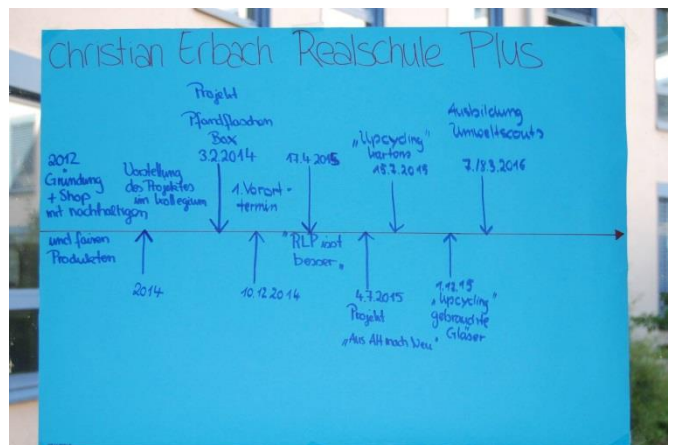 Christian Erbach Realschule Plus
2012
Gründung
+ Shop
mit nachhaltigen
und fairen
Produkten
Vorstellung
des Projektes
im Kollegium
2014
Projekt
Pfandflaschen
Box
3.2.2014
1. Vorort-
termin
10.12.2014
17.4.2015
"RLP isst
besser"
4.7.2015
Projekt
„Aus Alt mach Neu"
„Upcycling"
Kartons
15.7.2015
1.12.15
„Upcycling"
gebrauchte
Gläser
Ausbildung
Umweltscouts
7./8.3.2016